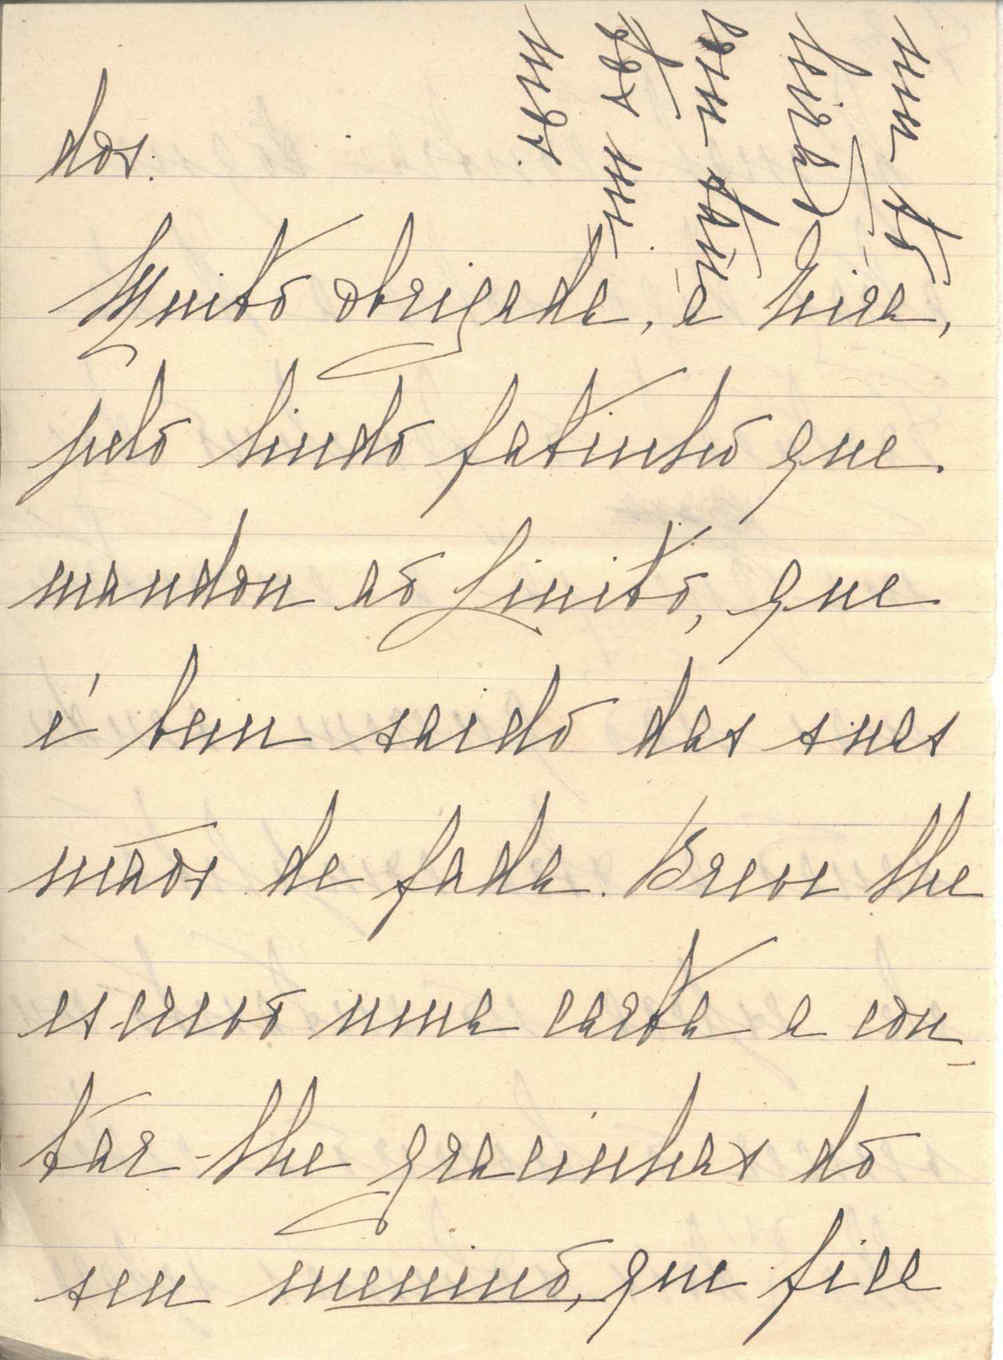 dos.
Muito obrigada, á Nira,
pelo lindo fatinho que
mandou ao Linito, que
é bem saido das suas
mãos de fada. Breve lhe
escrevo uma carta a con-
tar-lhe gracinhas do
seu menino, que fica
com tan-
tos mi-
mos.